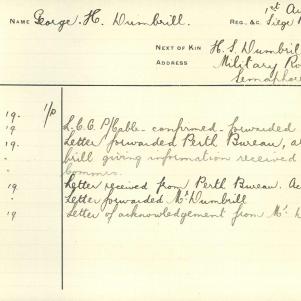 1st Au
NAME George. H. Dumbrill. REG. &C. Siege
NEXT OF KIN H. S. Dumbril
ADDRESS Military Ro
Semaphore
19. 1/p
19 S.C.G. P/Cable - confirmed - forwarded
19 Letter forwarded Perth Bureau, a
" brill giving information received
"
19 Letter received from Perth Bureau. Ac
" Letter forwarded Mr Dumbrill
19 Letter of acknowledgement from Mr D